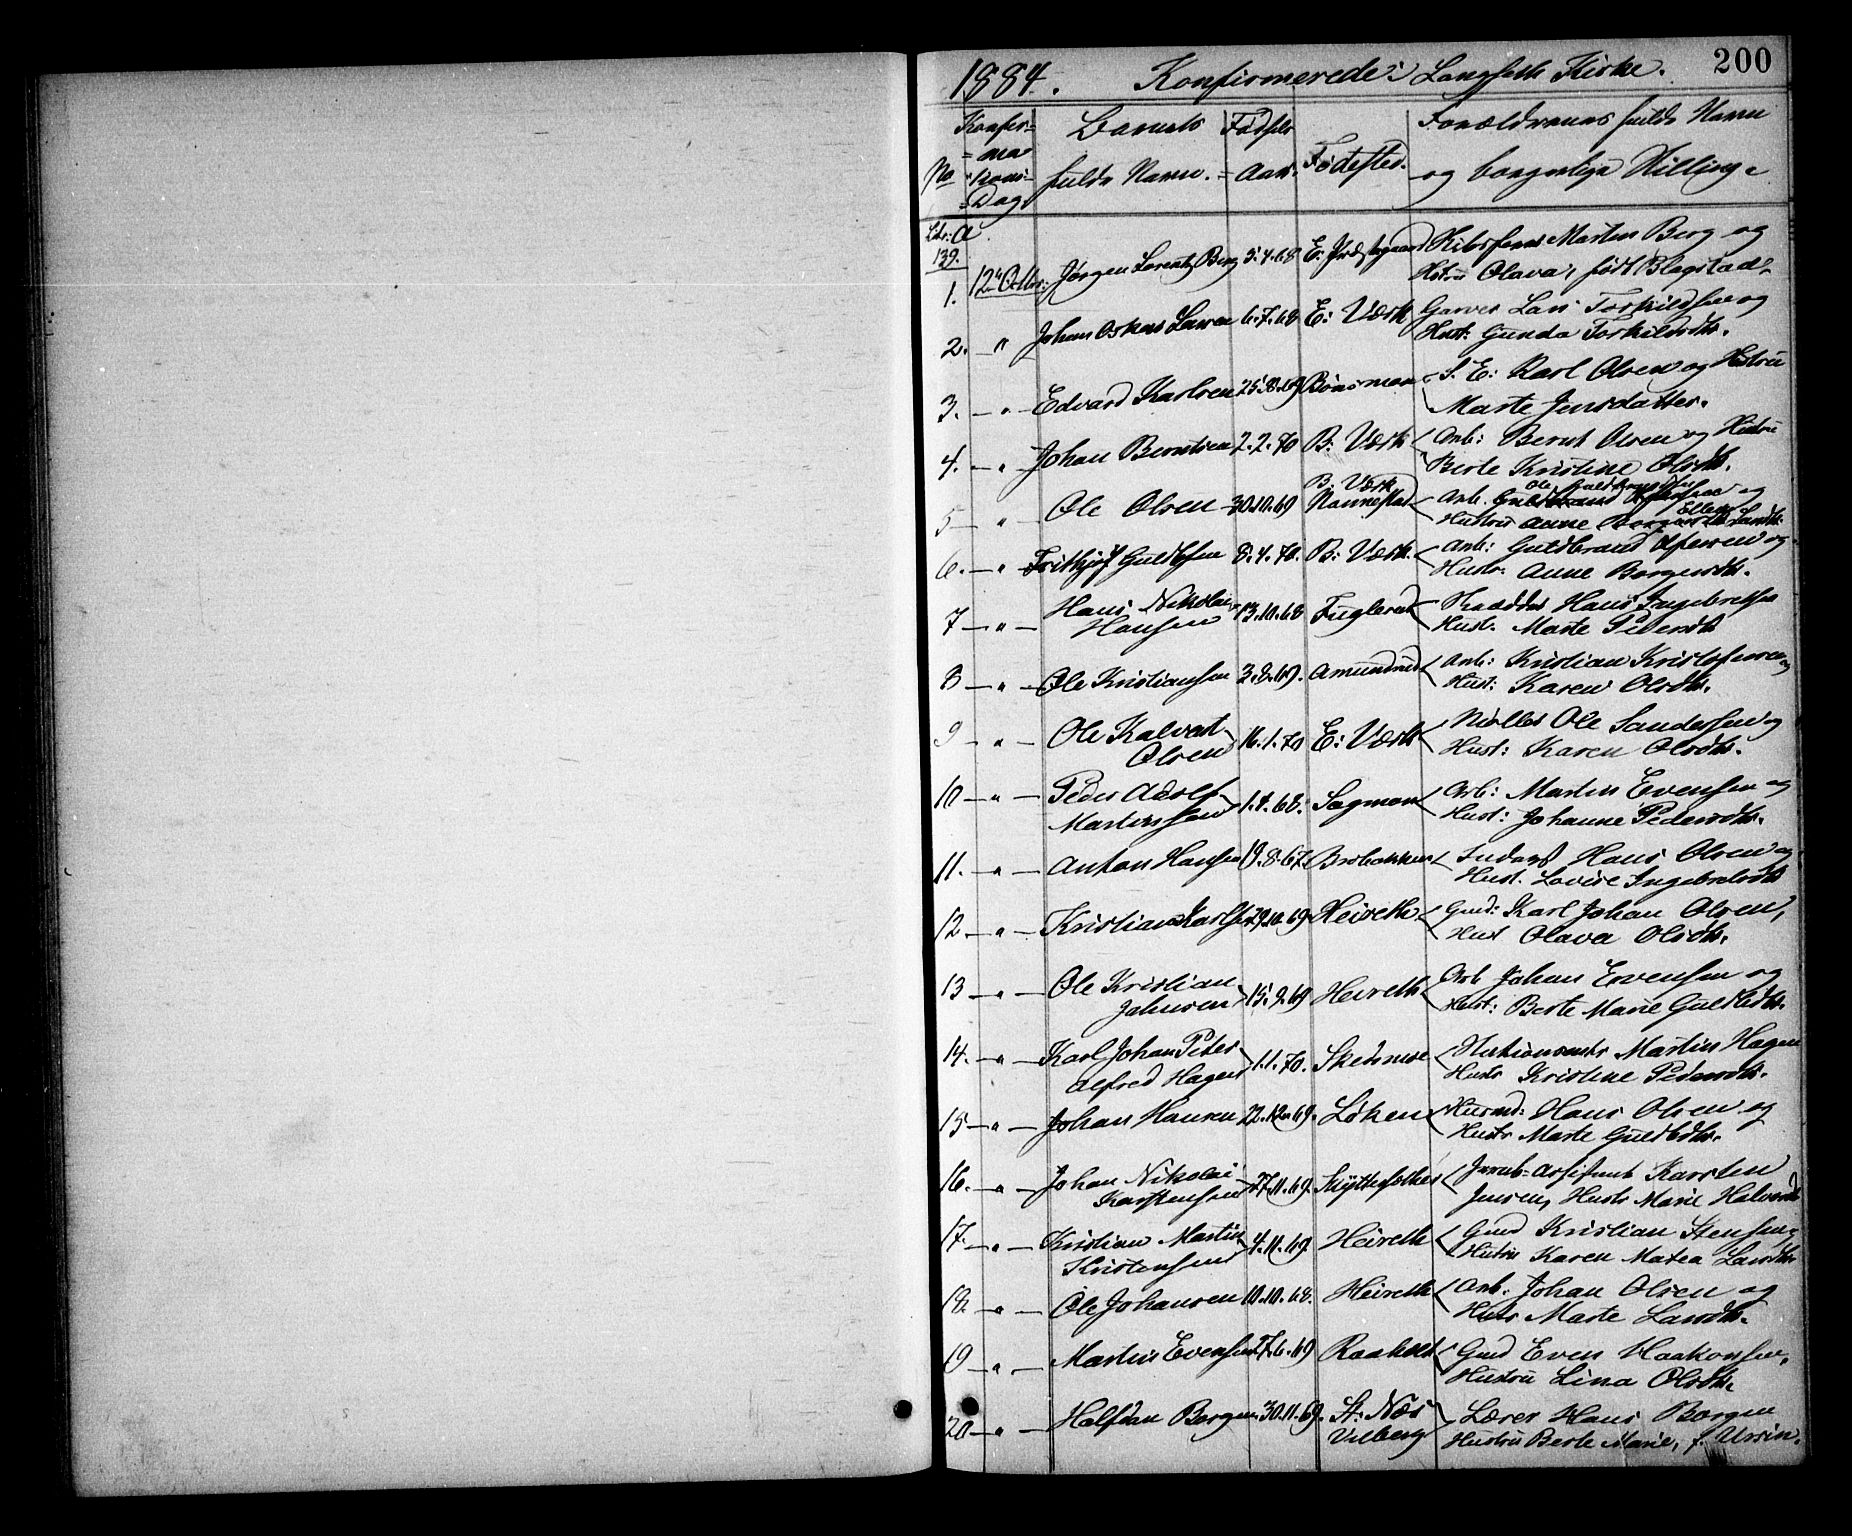 200
1884. Konfirmerede i Langseth Kirke.
No Konfirmations-Dag. Barnets fulde Navn. Fødsels-Aar. Fødested. Forældrenes fulde Navn og borgerlige Stilling.
Litr: a 139.
1. 12te Octbr: Jørgen Lorentz Berg 5.4.68 E. Præstegaard Martin Berg og
Hstru Olava, født Blegstad.
2. — " Johan Oskar Larsen 6.7.68 E: Værk Garver Lars Torkildsen og
Hust: Gunda Torkildsdtr.
3. — " — Edvard Karlsen 25.8.69 Bønsmoen S. E: Karl Olsen og Hustru
Marte Jensdatter.
4. — " — Johan Berntsen 2.2.70 B: Værk Arb: Bernt Olsen og Hustru
Berte Kristine Olsdtr.
5 — " Ole Olsen 30.10.69 B. Værk Nannestad Arb. Ole Guldbrandsen og
Hustru Ellen Larsdtr.
6. — " — Frithjof Guldbrsen 8.4.70. B: Værk. Arb: Guldbrand Apensen og
Hustr. Anne Borgersdtr.
7 — " — Hans Nikolai Hansen 13.10.68 Fuglerud Skrædder Hans Ingebretsen
Hust. Marte Pedersdtr
8 — " — Ole Kristiansen 3.8.69. Amundrud Arb: Kristian Kristofersen og
Hust: Karen Olsdtr.
9 — " — Ole Kalvert Olsen 16.1.70 E: Værk Møller Ole Sandersen og
Hust: Karen Olsdtr.
10 — " — Peder Adolf Martinsen 1.4.68. Sagmoen Arb: Martin Evensen og
Hust: Johanne Pedersdtr.
11. — " — Anton Hansen 19.8.67. Brobakken Inderst Hans Olsen og
Hust. Lovise Ingebretsdtr
12 — " — Kristian Karlsen 29.10.69 Heireth Gmd: Karl Johan Olsen,
Hust Olava Olsdtr.
13 — " — Ole Kristian Johnsen 15.9.69 Heireth Arb Johan Evensen og
Hust: Berte Marie Guldbdtr.
14. — " — Karl Johan Peter Alfred Hagen 1.1.70. Skedsmo Stationsmstr Martin Hagen
Hustr Kristine Pedersdtr.
15 — " — Johan Hansen 22.12.69. Løken Husmd: Hans Olsen og
Hustr Marte Guldbdtr.
16. — " — Johan Nikolai Karstensen 27.11.69. Jernb.-Assistent Karsten
Jensen, Hustr Marie Halvorsdtr
17. — " — Kristian Martin Kristensen 4.11.69 Heireth Gmd Kristian Stensen,
Hustru Karen Matea Larsdtr.
18. — " — Ole Johansen 10.10.68. Heireth Arb: Johan Olsen og
Hustr Marte Larsdtr.
19 — " — Martin Evensen 27.6.69 Raaholt Gmd Even Haakonsen,
Hustru Lina Olsdtr.
20 — " — Halfdan Borgen 30.11.69. St: Næs Vilberg Lærer Hans Borgen
Hustru Berte Marie, f. Ursin.